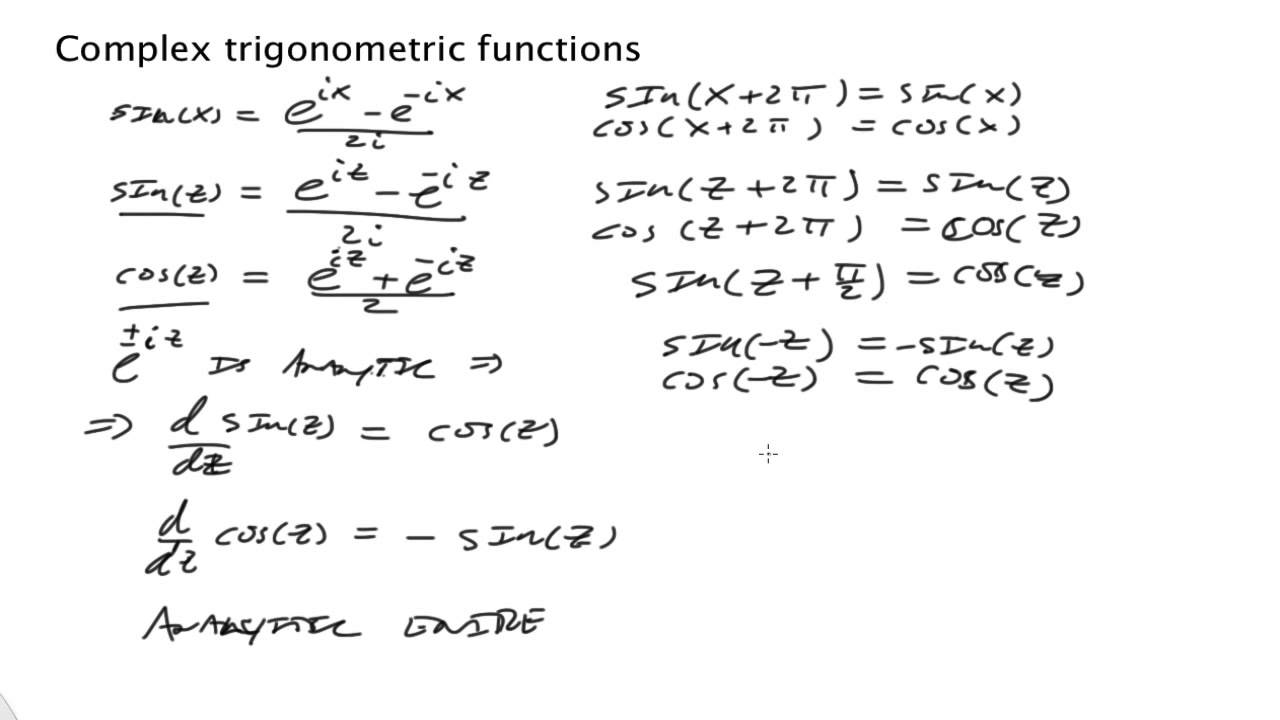 Complex trigonometric functions
sin(x) = (e^{ix} - e^{-ix})/2i
sin(z) = (e^{iz} - e^{-iz})/2i
cos(z) = (e^{iz} + e^{-iz})/2
e^{±iz} IS ANALYTIC ⇒
⇒ d/dz sin(z) = cos(z)
d/dz cos(z) = - sin(z)
ANALYTIC ENTIRE
sin(x+2π) = sin(x)
cos(x+2π) = cos(x)
sin(z+2π) = sin(z)
cos(z+2π) = cos(z)
sin(z+π/2) = cos(z)
sin(-z) = -sin(z)
cos(-z) = cos(z)